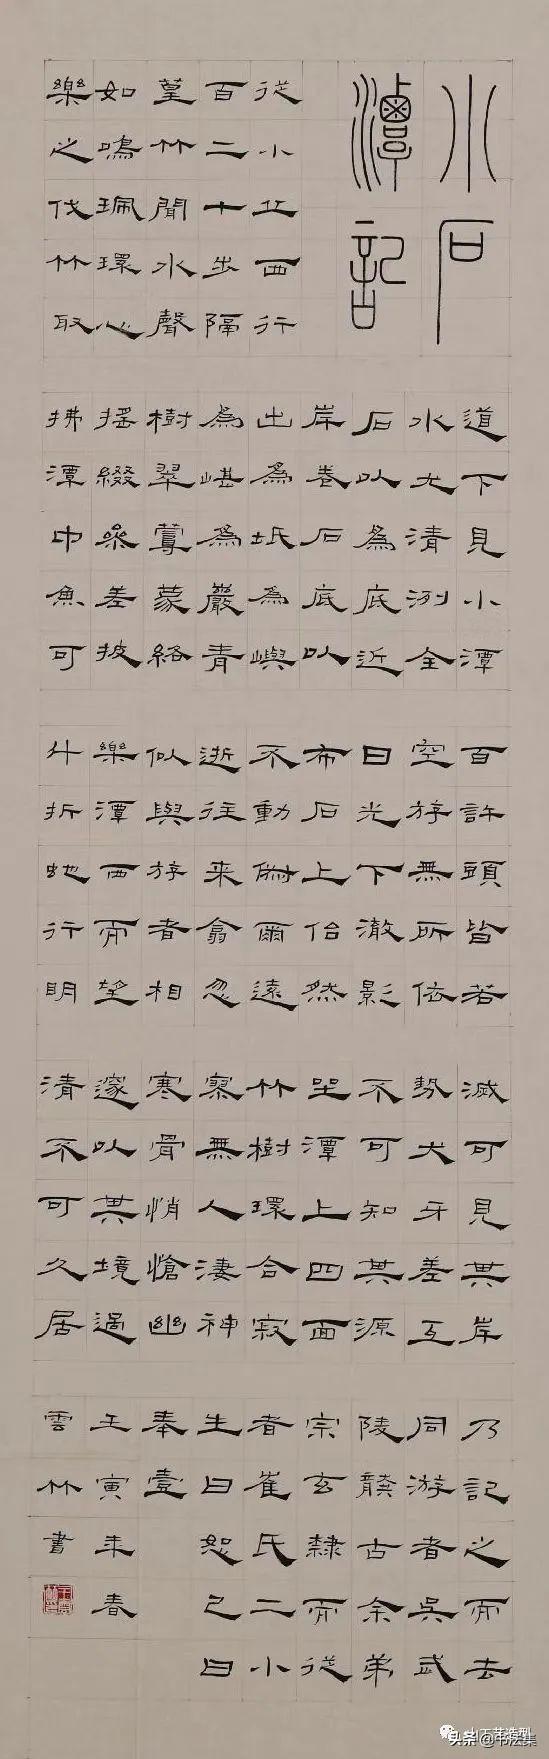 小石
潭記
從小丘西行
百二十步隔
篁竹聞水聲
如鳴珮環心
樂之伐竹取
道下見小潭
水尤清冽全
石以為底近
岸卷石底以
出為坻為嶼
為嵁為巖青
樹翠蔓蒙絡
搖綴參差披
拂潭中魚可
百許頭皆若
空游無所依
日光下澈影
布石上佁然
不動俶爾遠
逝往来翕忽
似與游者相
樂潭西而望
斗折蛇行明
滅可見其岸
勢犬牙差互
不可知其源
坐潭上四面
竹樹環合寂
寥無人淒神
寒骨悄愴幽
邃以其境過
清不可久居
乃記之而去
同游者吳武
陵龔古余弟
宗玄隸而從
者崔氏二小
生曰恕己曰
奉壹
壬寅年春
雲竹書
头条 @书法集